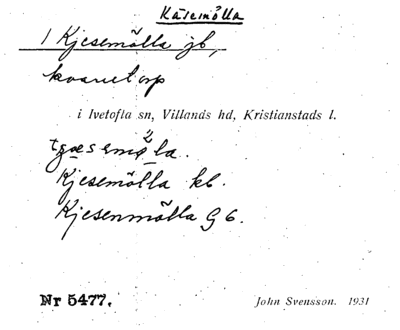 Käsemölla
1 Kjesemölla jb,
kvarnetorp
i Ivetofta sn, Villands hd, Kristianstads l.
Kjesemölla kb.
Kjesenmölla G 6.
Nr 5477.
John Svensson. 1931